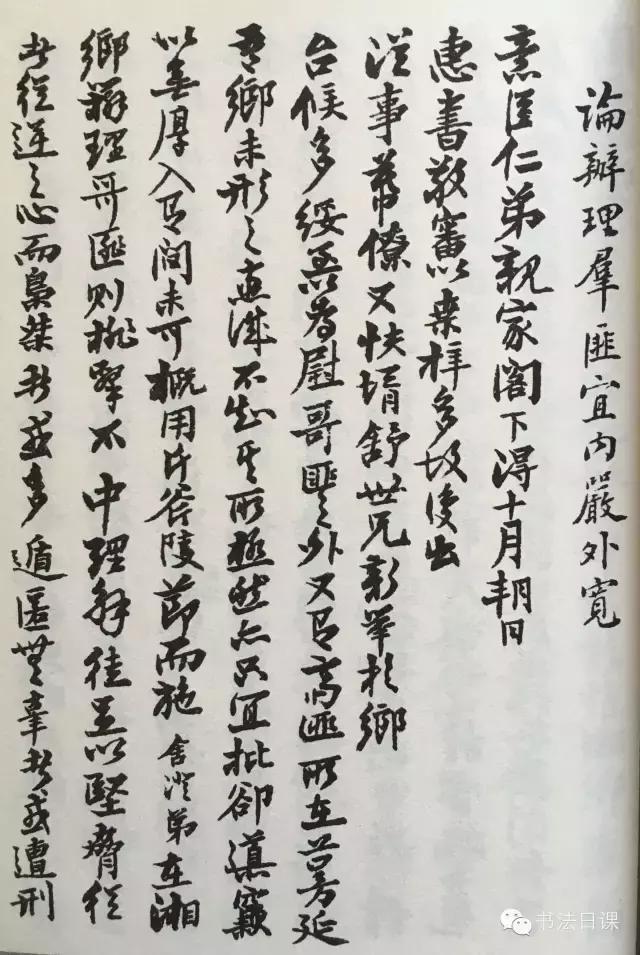 論辦理羣匪宜內嚴外寬
意臣仁弟親家閣下得十月朔日
惠書敬審以桑梓多故復出
從事幕僚又快壻舒世兄新舉於鄉
台候多綏以為慰哥匪之外又有齋匪所在蔓延
吾鄉未形之患誠不知其所極然亦只宜批卻導窾
以無厚入有間未可概用斤斧陵節而施舍澄弟在湘
鄉辦理哥匪則批擊不中理解徒足以堅脅從
者從逆之心而梟桀者或多遁匿無辜者或遭刑
书法日课